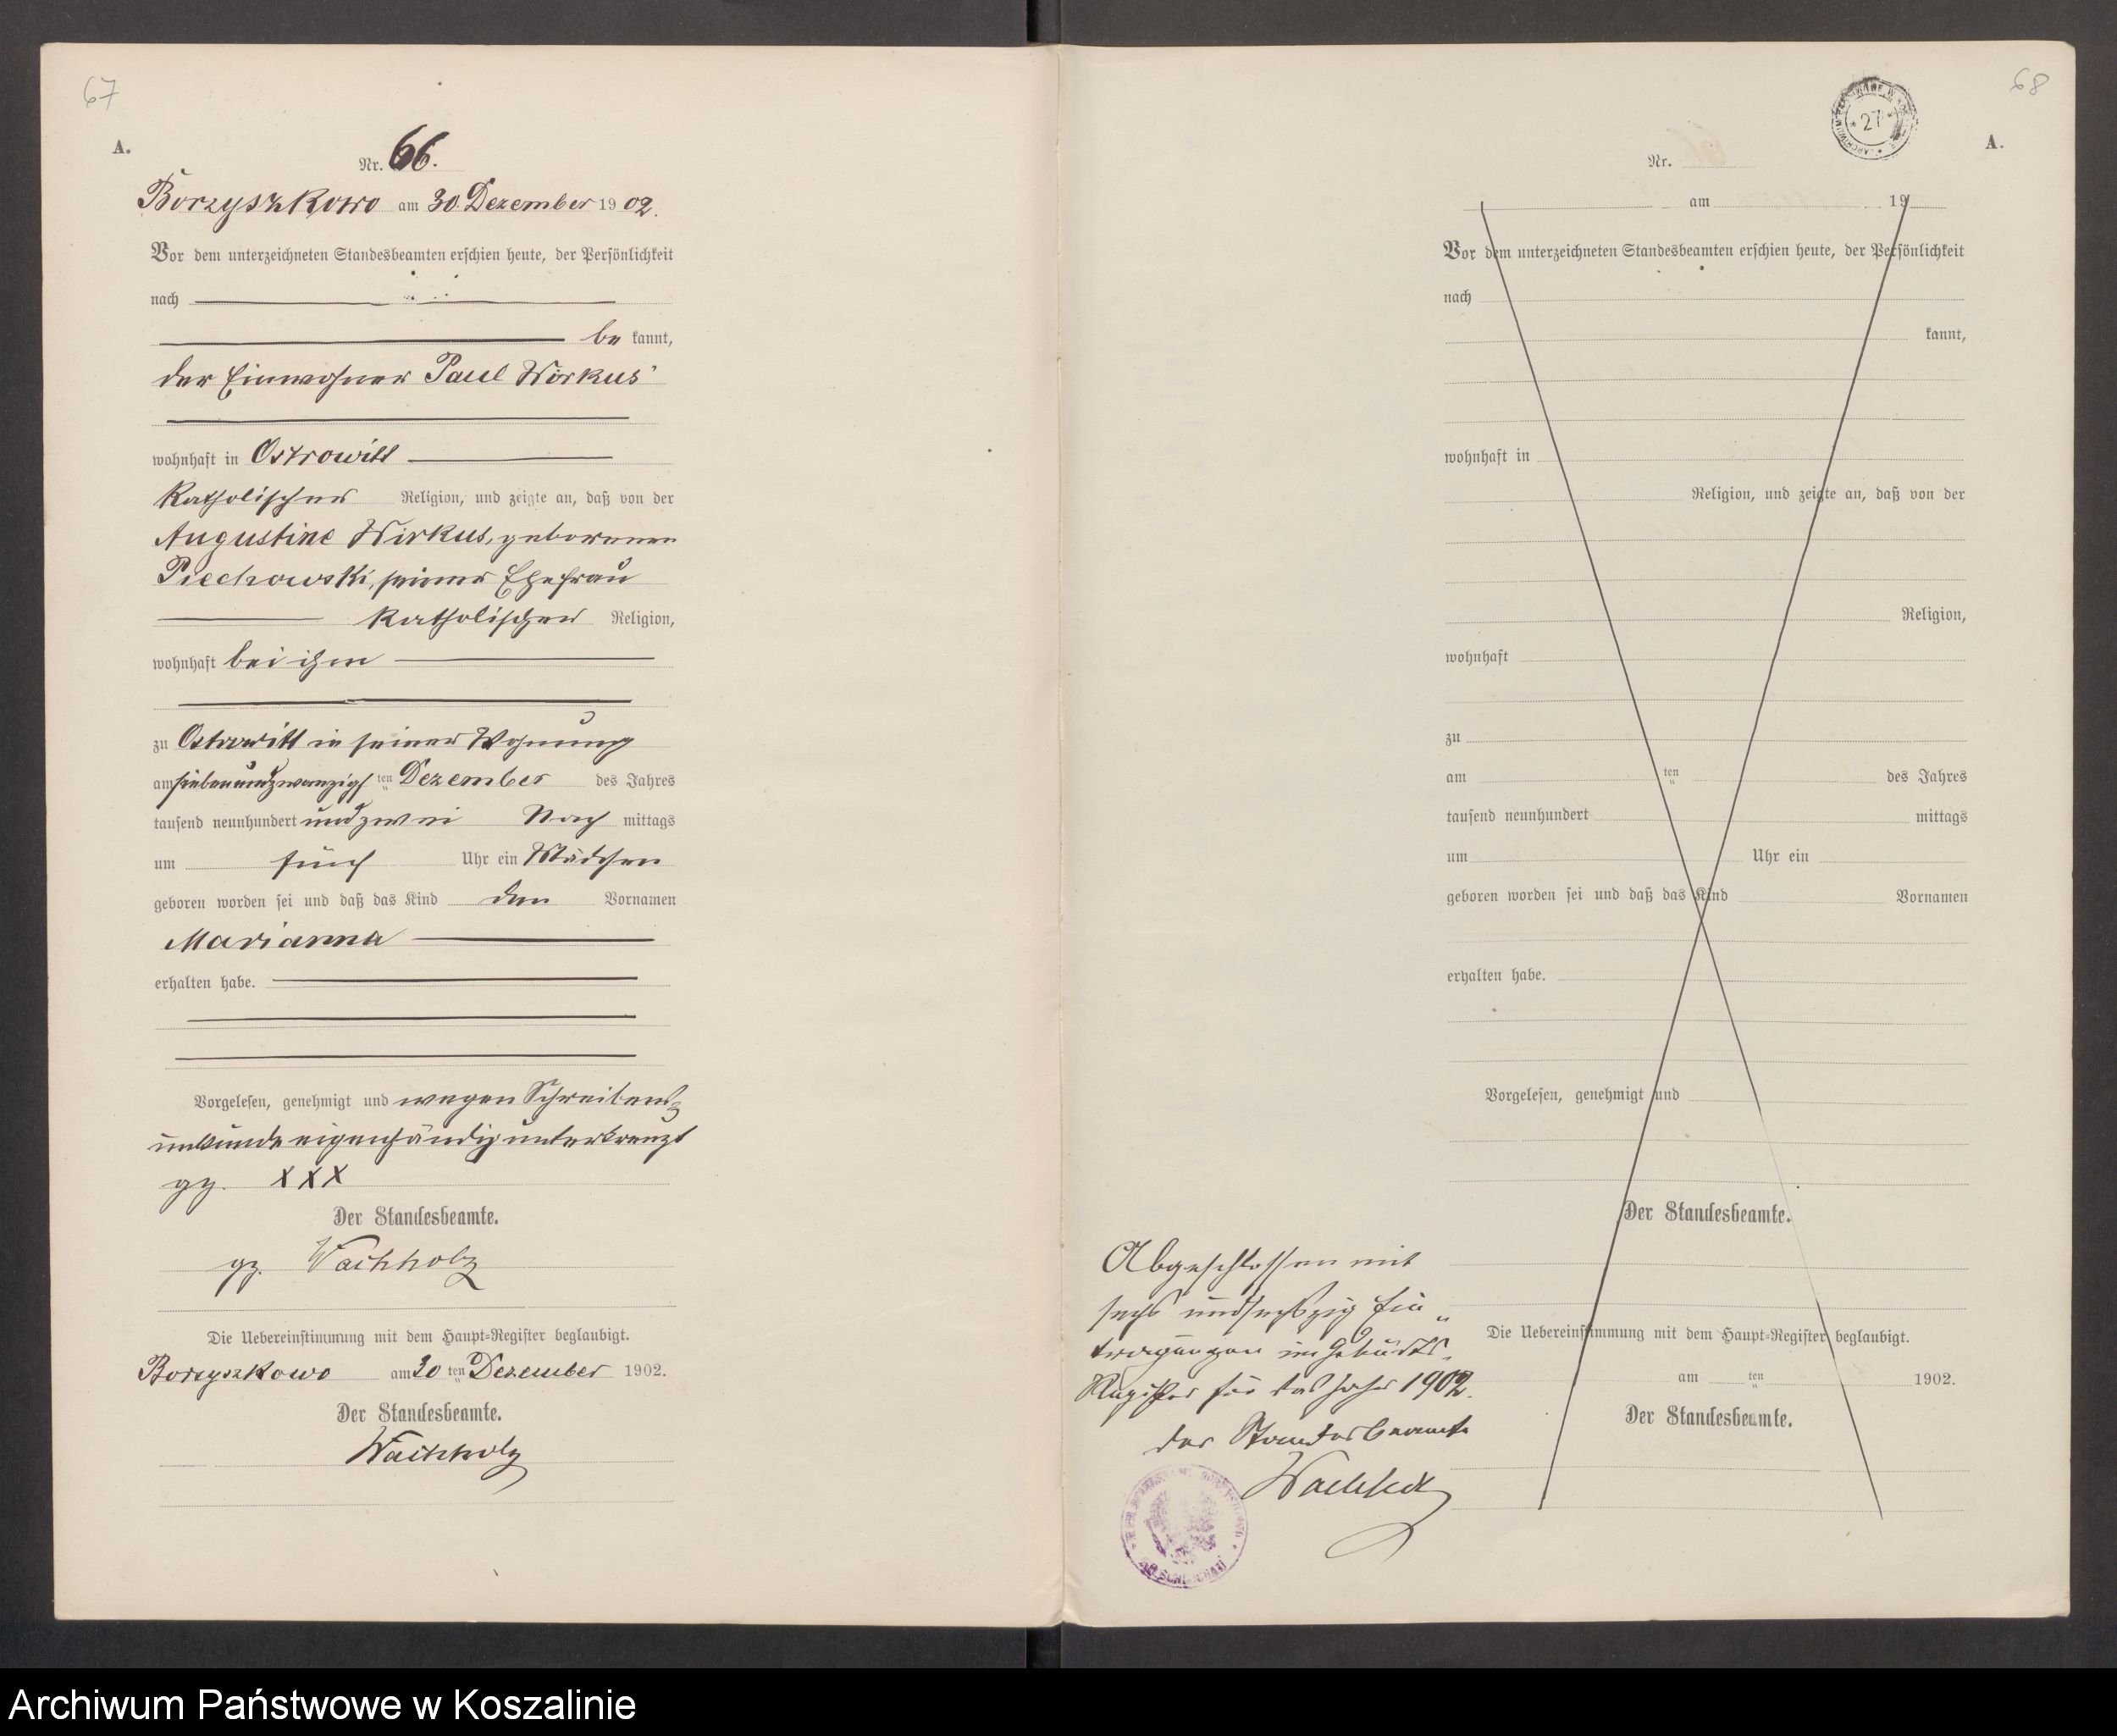 67
A.
Nr. 66.
Borzyszkowo am 30. Dezember 1902.
Vor dem unterzeichneten Standesbeamten erschien heute, der Persönlichkeit
nach
be kannt,
der Einwohner Paul Wirkus
wohnhaft in Ostrowitt
katholischer Religion, und zeigte an, daß von der
Augustine Wirkus, geborenen
Piechowski, seiner Ehefrau
katholischer Religion,
wohnhaft bei ihm
zu Ostrowitt in seiner Wohnung
am siebenundzwanzigsten Dezember des Jahres
tausend neunhundert und zwei Nach mittags
um fünf Uhr ein Mädchen
geboren worden sei und daß das Kind den Vornamen
Marianna
erhalten habe.
Vorgelesen, genehmigt und wegen Schreibens
unkunde eigenhändig unterkreuzt
gz. XXX
Der Standesbeamte.
gz. Wachholz
Die Uebereinstimmung mit dem Haupt-Register beglaubigt.
Borzyszkowo am 30 ten Dezember 1902.
Der Standesbeamte.
Wachholz
68
27
A.
Nr.
am 19
Vor dem unterzeichneten Standesbeamten erschien heute, der Persönlichkeit
nach
kannt,
wohnhaft in
Religion, und zeigte an, daß von der
Religion,
wohnhaft
zu
am ten des Jahres
tausend neunhundert mittags
um Uhr ein
geboren worden sei und daß das Kind Vornamen
erhalten habe.
Vorgelesen, genehmigt und
Der Standesbeamte.
Die Uebereinstimmung mit dem Haupt-Register beglaubigt.
am ten 1902.
Der Standesbeamte.
Abgeschlossen mit
sechs und sechszig Ein„
tragungen im Geburts-
Register für das Jahr 1902.
Der Standesbeamte
Wachholz
Archiwum Państwowe w Koszalinie